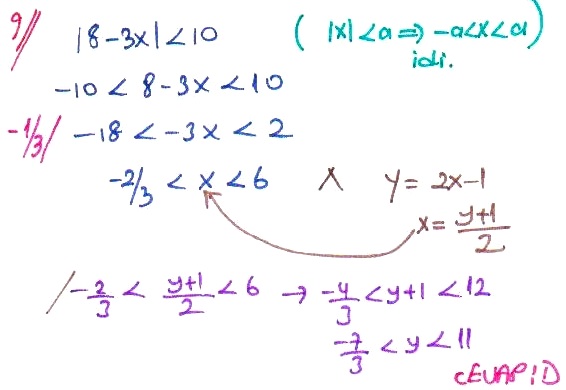 9// |8-3x|<10 ( |x|<a ⇒ -a<x<a)
idi.
-10 < 8-3x < 10
-1/3/ -18 < -3x < 2
-2/3 < x < 6 ∧ y = 2x-1
x = (y+1)/2
/ -2/3 < (y+1)/2 < 6 → -4/3 < y+1 < 12
-7/3 < y < 11
CEVAP: D